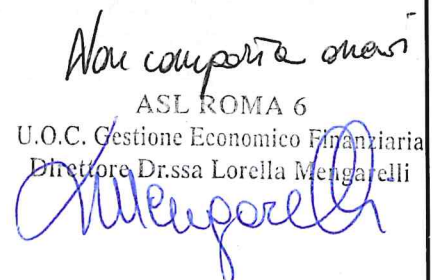 Non comporta oneri
ASL ROMA 6
U.O.C. Gestione Economico Finanziaria
Direttore Dr.ssa Lorella Mengarelli
LMengarelli